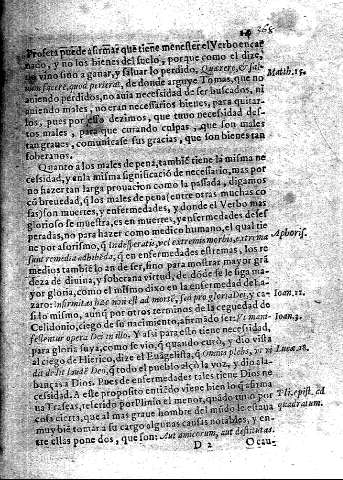 Profeta puede afirmar que tiene menester el Verbo encar
nado, y no los bienes del suelo, porque como el dize,
no vino sino a ganar, y saluar lo perdido, Quærere, & sal-
uum facere, quod perierat, de donde arguye Tomas, que no
auiendo perdidos, no auia necessidad de ser buscados, ni
auiendo males, no eran necessarios bienes, para quitar-
los, pues por esso dezimos, que tuuo necessidad des-
tos males, para que curando culpas, que son males
tan graues, comunicasse sus gracias, que son bienes tan
soberanos.
Quanto a los males de pena, tambiẽ tiene la misma ne
cessidad, y en la misma significació de necessario, mas por
no hazer tan larga prouacion como la passada, digamos
cõ breuedad, q̃ los males de pena (entre otras muchas co
sas) son muertes, y enfermedades, y donde el Verbo mas
glorioso se muestra, es en muertes, y enfermedades deses
peradas, no para hazer como medico humano, el qual tie
ne por aforismo, q̃ In desperatis, vel extremis morbis, extrema
sunt remedia adhibēda, q̃ en enfermedades estremas, los re
medios tambiē lo an de ser, sino para mostrar mayor grã
deza de diuina, y soberana virtud, de dõde se le siga ma-
yor gloria, como el mismo dixo en la enfermedad de La-
zaro: Infirmitas hæc non est ad mortē, sed pro gloria Dei, y ca-
si lo mismo, aunq̃ por otros terminos de la ceguedad de
Celidonio, ciego de su nacimiento, afirmado ser: Vt mani-
festentur opera Dei in illo. Y assi para esto tiene necessidad,
para gloria suya, como se vio, q̃ quando curò, y dio vista
al ciego de Hierico, dize el Euãgelista, q̃ Omnis plebs, vt vi
dit dedit laudē Deo, q̃ todo el pueblo alçò la voz, y dio ala-
banças a Dios. Pues de enfermedades tales tiene Dios ne
cessidad. A este proposito
Traseas, referido por Plinio el menor,
cosa cierta, que al mas graue hombre del mũdo le estaua
muy biē tomar a su cargo algunas causas notables, y en-
tre ellas pone dos, que son: Aut amicorum, aut destitutas.
D 2 Ocau-
Matth. 15.
Aphoris.
Ioan. 11.
Ioan. 9.
Lucæ. 18.
Pli. epist. ad
quadratum.